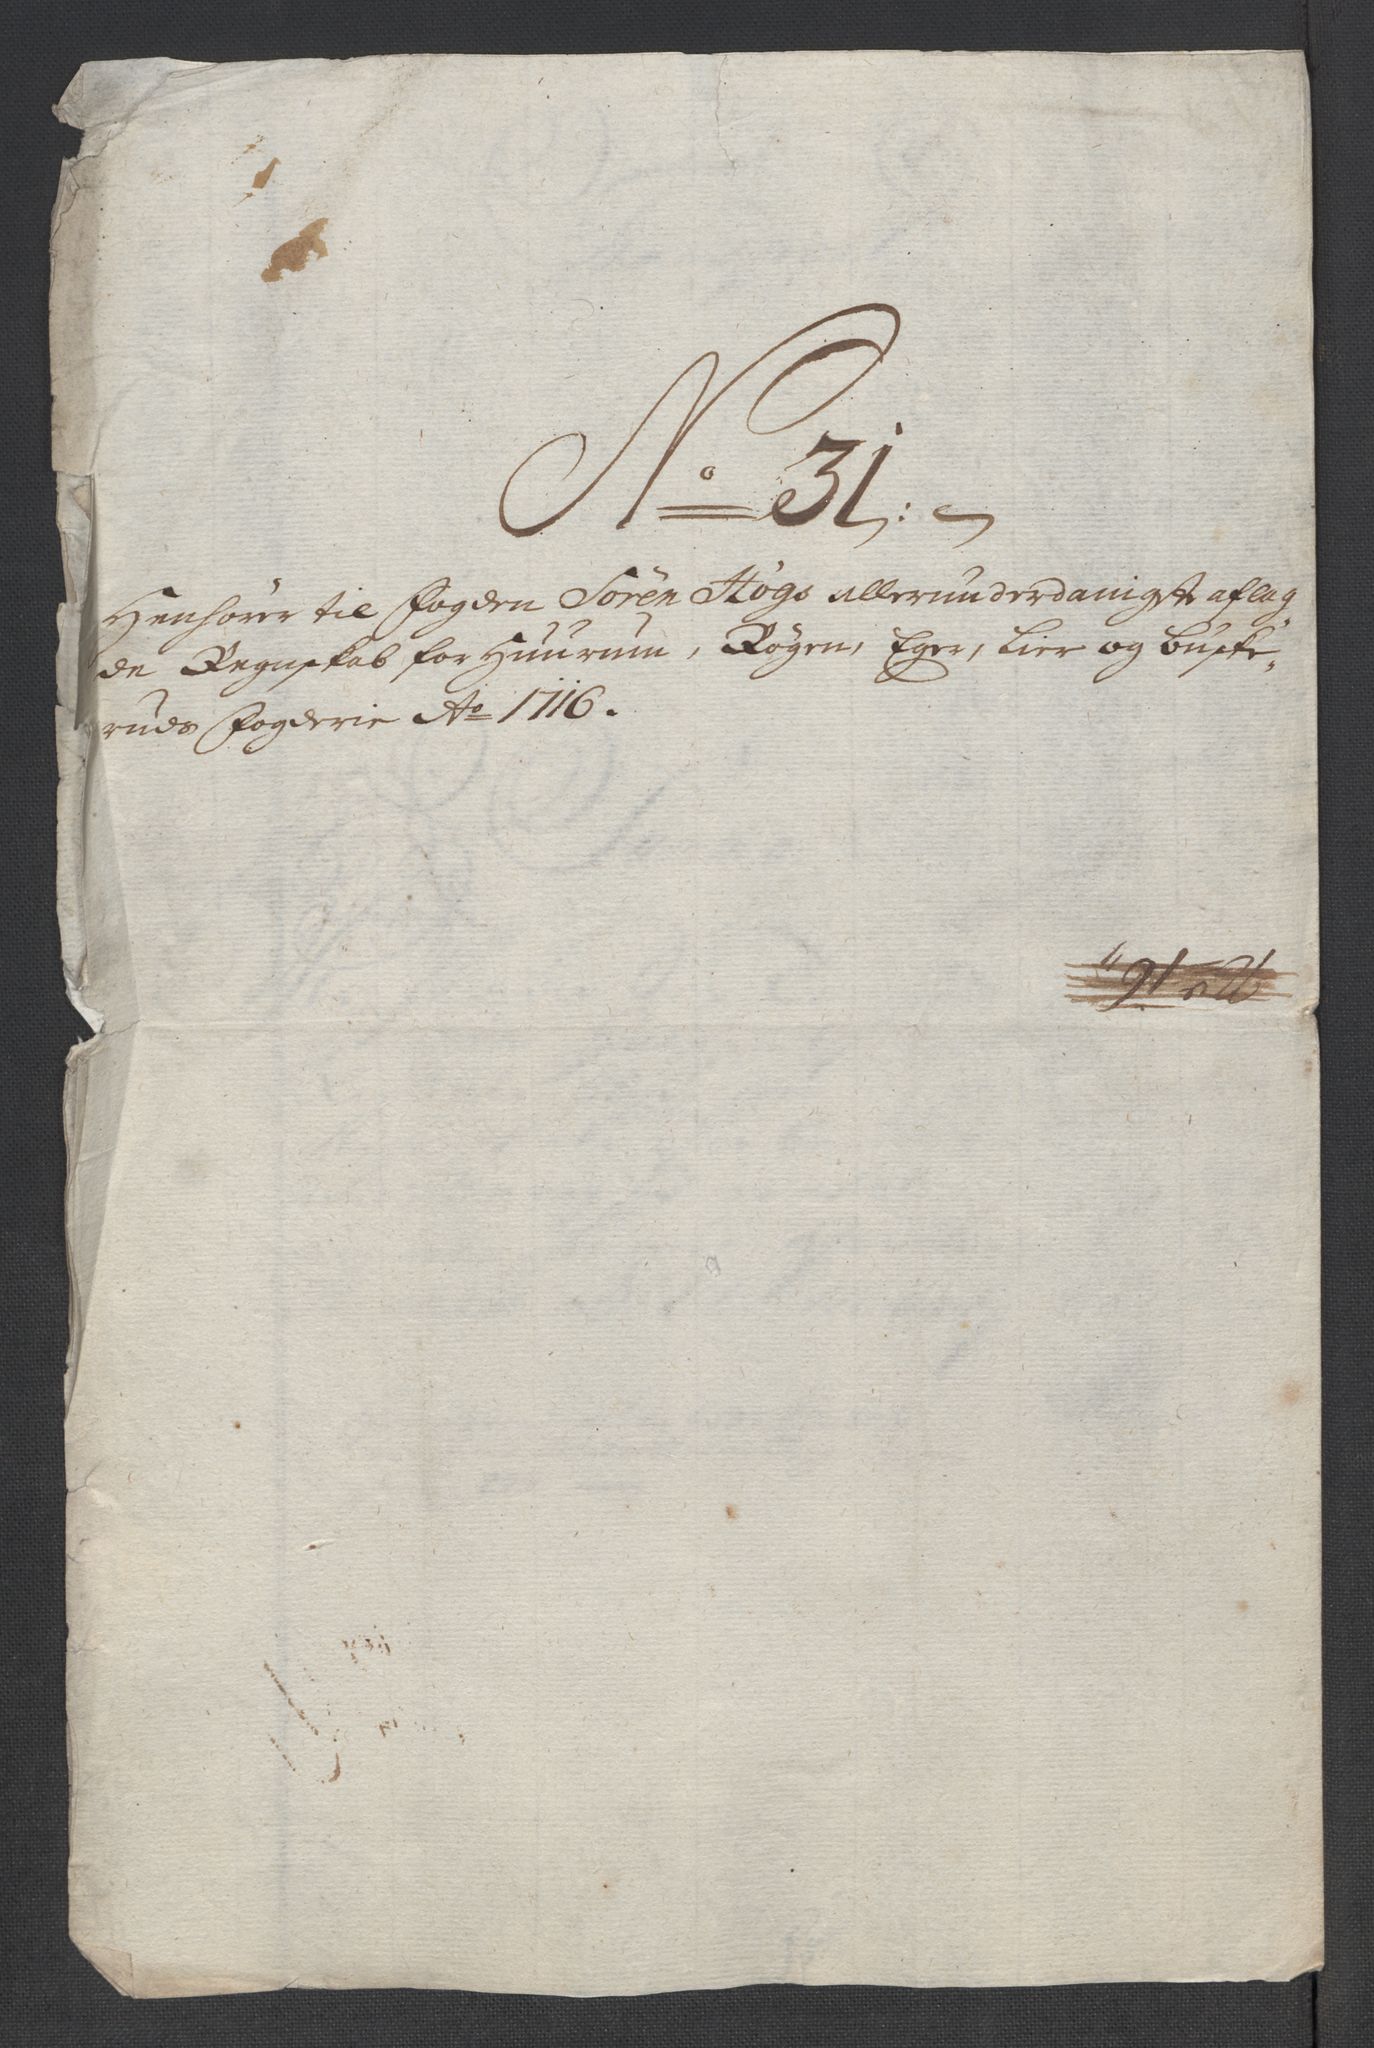 No 31:
Henhörer til fogden Sören Högs allerunderdanigste aflag„
de Regnskab for Huurum, Rögen, Eger, Lier og Buske„
ruds fogderie Ao 1716.